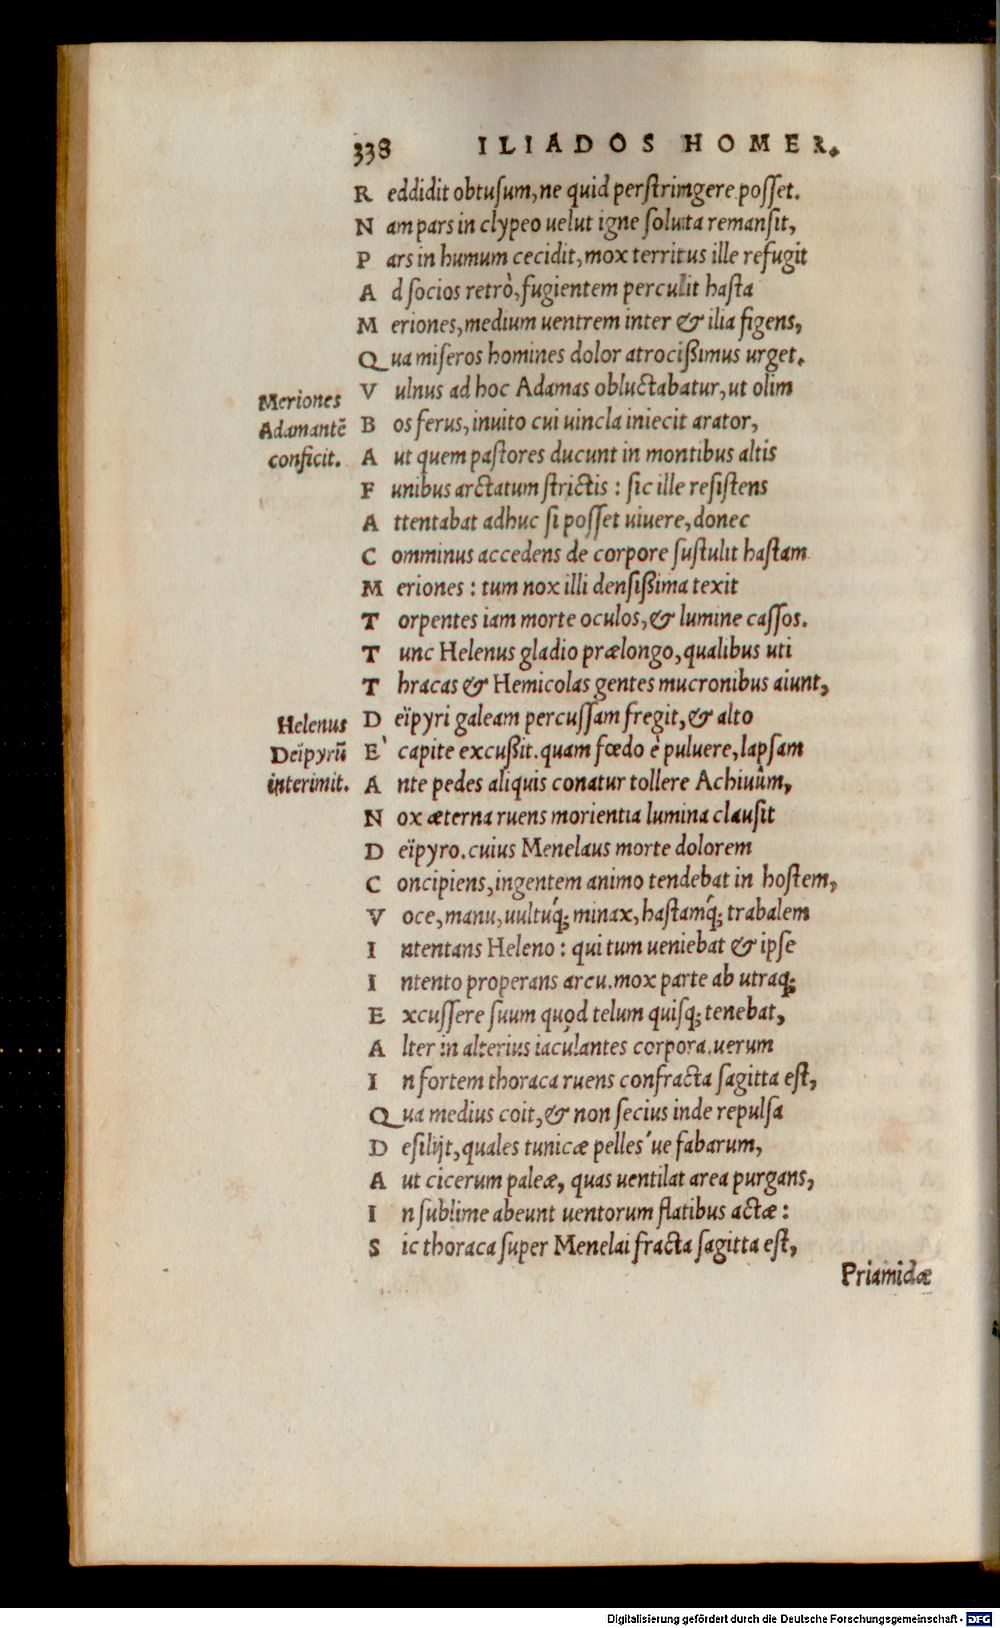 338 ILIADOS HOMER.
Reddidit obtusum, ne quid perstringere posset.
Nam pars in clypeo uelut igne soluta remansit,
Pars in humum cecidit, mox territus ille refugit
Ad socios retrò, fugientem perculit hasta
Meriones, medium uentrem inter & ilia figens,
Qua miseros homines dolor atrocißimus urget.
Vulnus ad hoc Adamas obluctabatur, ut olim
Bos ferus, inuito cui uincla iniecit arator,
Aut quem pastores ducunt in montibus altis
Funibus arctatum strictis : sic ille resistens
Attentabat adhuc si posset uiuere, donec
Comminus accedens de corpore sustulit hastam
Meriones : tum nox illi densißima texit
Torpentes iam morte oculos, & lumine cassos.
Tunc Helenus gladio prælongo, qualibus uti
Thracas & Hemicolas gentes mucronibus aiunt,
Deïpyri galeam percussam fregit, & alto
E' capite excußit. quam fœdo è puluere, lapsam
Ante pedes aliquis conatur tollere Achiuûm,
Nox æterna ruens morientia lumina clausit
Deïpyro. cuius Menelaus morte dolorem
Concipiens, ingentem animo tendebat in hostem,
Voce, manu, uultuq́; minax, hastamq́; trabalem
Intentans Heleno : qui tum ueniebat & ipse
Intento properans arcu. mox parte ab utraq;
Excussere suum quod telum quisq; tenebat,
Alter in alterius iaculantes corpora. uerum
In fortem thoraca ruens confracta sagitta est,
Qua medius coit, & non secius inde repulsa
Desilijt, quales tunicæ pelles 've fabarum,
Aut cicerum paleæ, quas uentilat area purgans,
In sublime abeunt uentorum flatibus actæ :
Sic thoraca super Menelai fracta sagitta est,
Priamidæ
Meriones
Adamantē
conficit.
Helenus
Deïpyrū
interimit.
Digitalisierung gefördert durch die Deutsche Forschungsgemeinschaft - DFG